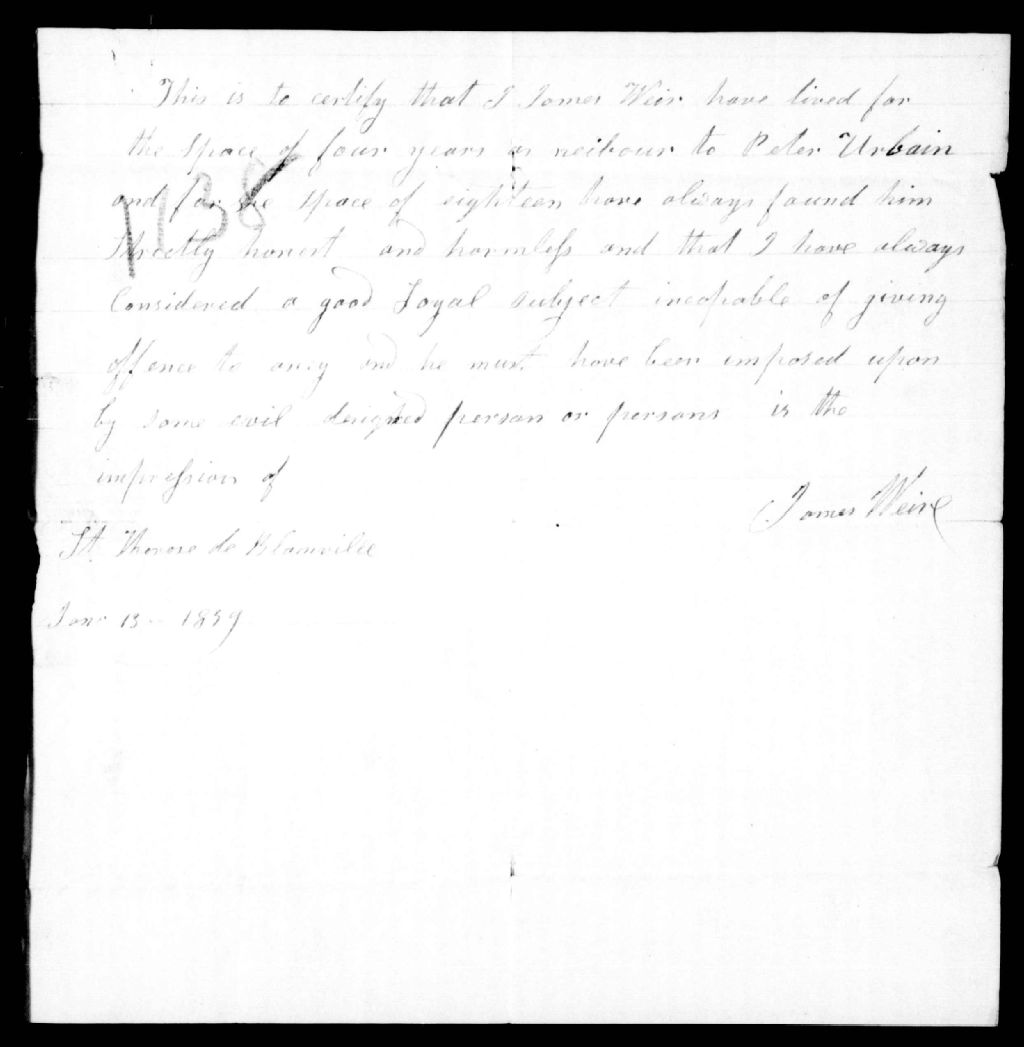 This is to certify that I James Weir have lived for
the space of four years as neibour to Peter Urbain
and for the space of eighteen have always found him
1138
strectly honest and harmless and that I have always
Considered a good Loyal subject incapable of giving
offence to anny and he must have been imposed upon
by some evil designed person or persons is the
impression of
James Weir
St. Therese de Blanville
Jany 13 - 1839